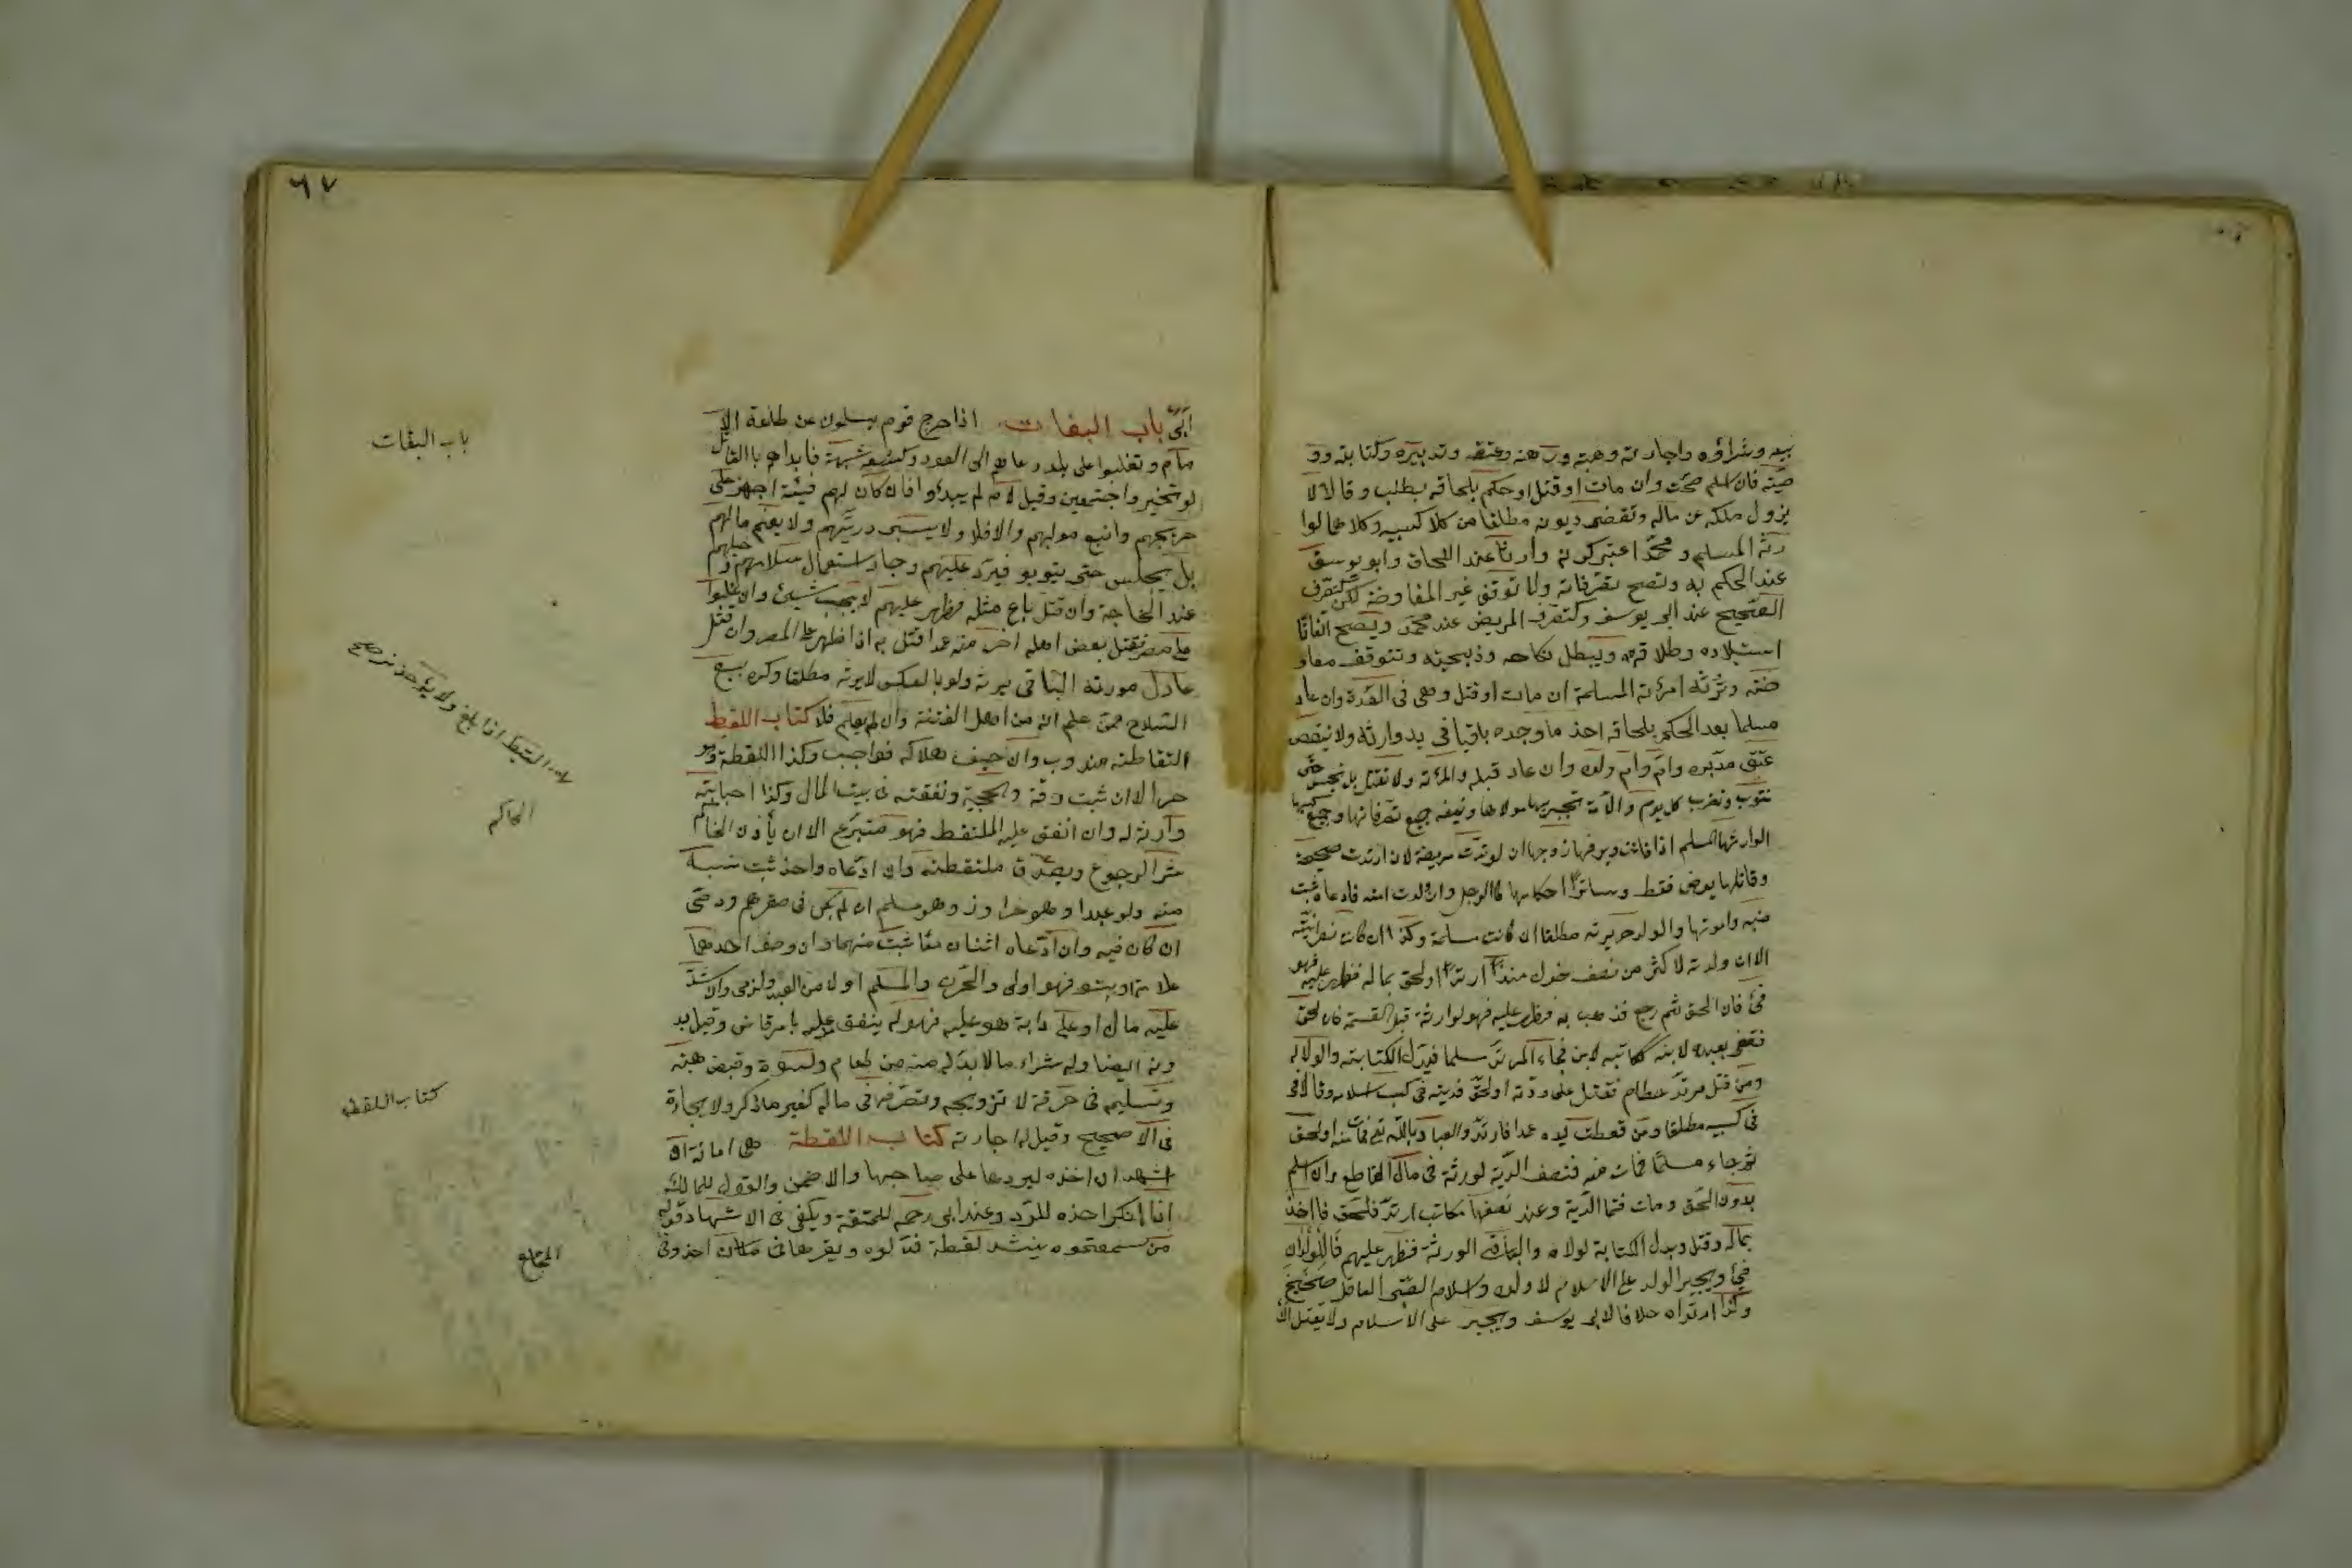 بيعه وشراؤه واجارته وهبته ورهنه وعتقه وتدبيره وكتابته وو
صيته فان اسلم صحت وان مات او قتل او حكم بلحاقه بطلت وقالا لا
يزول ملكه عن ماله وتقضى ديونه مطلقا من كلا كسبيه وكلاهما لوا
رثه المسلم ومحمد اعتبر كونه وارثا عند اللحاق وابو يوسف
عند الحكم به وتصح تصرفاته ولا توقف غير المفاوضة لكن كتصرف
الصحيح عند ابى يوسف وكتصرف المريض عند محمد ويصح اتفاقا
استيلاده وطلاقه ويبطل نكاحه وذبيحته وتتوقف مفاو
ضته وترثه امرأته المسلمة ان مات او قتل وهى فى العدة وان عاد
مسلما بعد الحكم بلحاقه اخذ ما وجده باقيا فى يد وارثه ولا ينقض
عتق مدبره وام ولده وان عاد قبله والمرأة لا تقتل بل تحبس حتى
تتوب وتضرب كل يوم والامة تجبرها مولاها وينفذ جميع تصرفاتها وجميع كسبها
الوارثها المسلم اذا ماتت ويرثها زوجها ان ارتدت مريضة لا ان ارتدت صحيحة
وقاتلها يعزر فقط وسائر احكامها كالرجل وان ولدت امته فادعاه ثبت
نسبه وامومتها والولد حر يرثه مطلقا ان كانت مسلمة وكذا ان كانت نصرانية
الا ان ولدته لاكثر من نصف حول منذ ارتد او لحق بماله فظهر عليه فهو
فئ فان لحق ثم رجع فذهب به فظهر عليه فهو لوارثه قبل القسمة فان لحق
فقضى بعبده لابنه فكاتبه الابن فجاء المرتد مسلما فبدل الكتابة والولاء له
ومن قتل مرتد خطاء فقتل على ردته او لحق فديته فى كسب اسلامه وقالا فى
فى كسبيه مطلقا ومن قطعت يده عمدا فارتد والعياذ بالله تع فمات منه او لحق
ثم جاء مسلما فمات منه فنصف الدية لورثته فى مال القاطع وان اسلم
بدون لحق ومات فتمام الدية وعند محمد نصفها مكاتب ارتد فلحق فاخذ
بماله وقتل فبدل الكتابة لمولاه والباقى لورثته فظهر عليهم فالولدان
فئ ويجبر الولد على الاسلام لا ولده واسلام الصبى العاقل صحيح
وكذا ارتداده خلافا لابى يوسف ويجبر على الاسلام ولا يقتل ان
ابى باب البغات اذا خرج قوم مسلمون عن طاعة الا
مام وتغلبوا على بلد دعاهم الى العود وكشف شبهة فابدأهم بالقتال
لو تحيز واجتمعين وقيل لا ما لم يبدؤا فان كان لهم فيئة اجهز على
جريحهم واتبع موليهم والا فلا ولا يسبى ذريتهم ولا يغنم مالهم
بل يحبس حتى يتوبو فيرد عليهم وجاز استعمال سلاحهم وخيلهم
عند الحاجة وان قتل باغ مثله فظهر عليهم لا يجب شيئ وان غلبوا
على مصر فقتل بعض اهله اخر منه عمدا قتل به اذا ظهر على المصر وان قتل
عادل مورثه الباغى يرثه ولو بالعكس لا يرثه مطلقا وكره بيع
السلاح ممن علم انه من اهل الفتنة وان لم يعلم فلا كتاب اللقط
التقاطه مندوب وان خيف هلاكه فواجب وكذا اللقطة وهو
حر الا ان ثبت رقه بحجية ونفقته فى بيت المال وكذا جنايته
وارثه له وان انفق عليه الملتقط فهو متبرع الا ان يأذن الحاكم
بشرط الرجوع ويصدق ملتقطه وان ادعاه واحد ثبت نسبه
منه ولو عبدا وهو حر او ذمى وهو مسلم ان لم يكن فى مقرهم وذمى
ان كان فيه وان ادعاه اثنان معا ثبت منهما وان وصف احدهما
علامة به فهو اولى والحر والمسلم اولا من العبد والذمى وان شد
عليه مال او على دابة هو عليها فهو له ينفق عليه بامر قاض وقيل بد
ونه ايضا وله شراء ما لا بد له منه من طعام وكسوة وقبض هبته
وتسليمه فى حرفة لا تزويجه وتصرفه فى ماله لغير ما ذكر ولا اجارة
فى الاصحيح وقيل له اجارته كتاب اللقطة هى امانة ان
اشهد ان اخذه ليردها على صاحبها والا ضمن والقول للمالك
ان انكر اخذه للرد وعند ابى يوسف للملتقط ويكفى فى الاشهاد قوله
من سمعتموه ينشد لقطة فدلوه ويعرفها فى مكان اخذ وفى
المجامع
باب البغات
اللقيط اذا بلغ ولا يؤخذ
الحاكم
كتاب اللقطه
٦٧